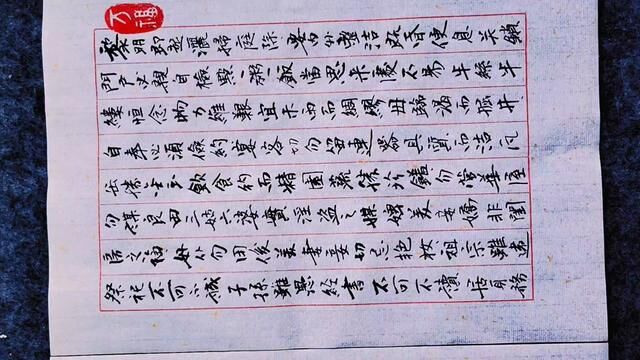 万福
黎明即起灑掃庭除要內外整潔既昏便息关鎖
門戶必親自檢點一粥一飯當思來處不易半絲半
縷恒念物力維艱宜未雨而綢繆毋臨渴而掘井
自奉必須儉約宴客切勿留連器具質而洁瓦
缶勝金玉飲食約而精園蔬勝珍饈勿營華屋
勿謀良田三姑六婆實淫盜之媒婢美妾嬌非閨
房之福奴仆勿用俊美妻妾切忌艳妝祖宗雖遠
祭祀不可不誠子孫雖愚經書不可不讀居身務